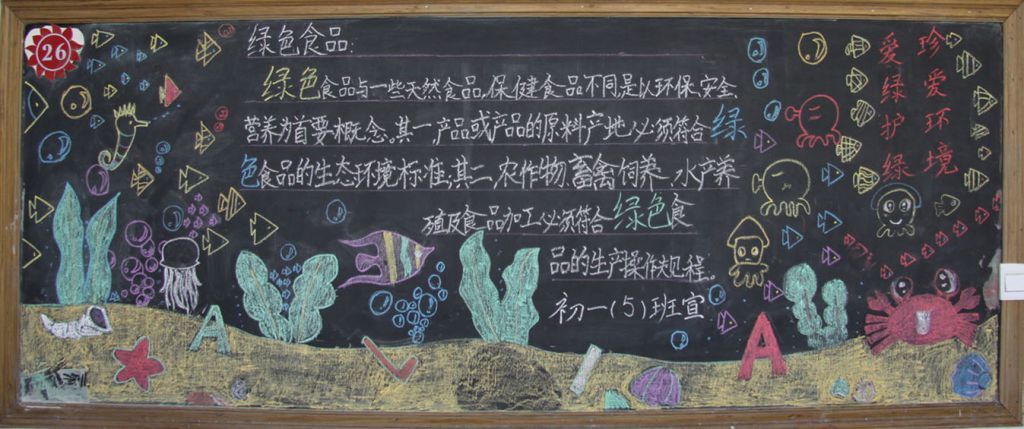 26
绿色食品:
绿色食品与一些天然食品,保健食品不同,是以环保、安全、
营养为首要概念。其一产品或产品的原料产地必须符合绿
色食品的生态环境标准,其二农作物、畜禽饲养、水产养
殖及食品加工必须符合绿色食
品的生产操作规程。
初一(5)班宣
珍爱环境
爱绿护绿
A
A